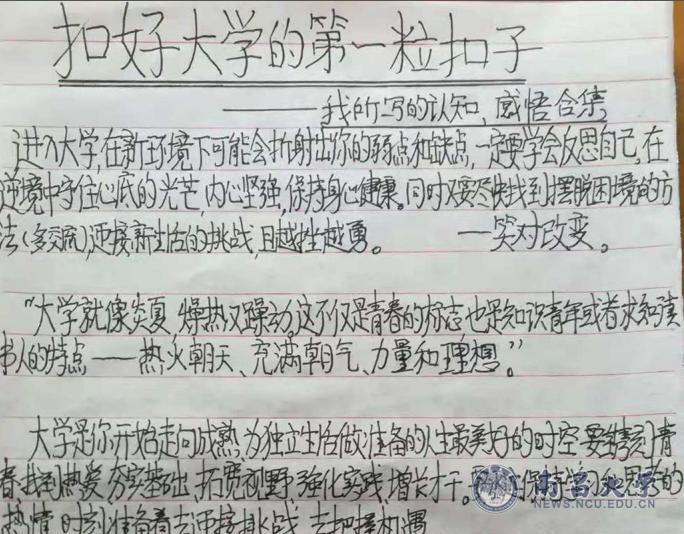 扣好大学的第一粒扣子
——我所写的认知、感悟合集
进入大学,在新环境下可能会折射出你的弱点和缺点,一定要学会反思自己,在
逆境中守住心底的光芒,内心坚强,保持身心健康。同时又要尽快找到摆脱困境的方
法(多交流),迎接新生活的挑战,且越挫越勇。 —笑对改变。
“大学就像炎夏,燥热又躁动。这不仅是青春的标志,也是知识青年或者求知读
书人的特点——热火朝天、充满朝气、力量和理想。”
大学是你开始走向成熟,为独立生活做准备的人生最美好的时空,要镌刻青
春,找到热爱,夯实基础,拓宽视野,强化实践,增长才干。保持学习和思考的
热情,时刻准备着去迎接挑战,去把握机遇
南昌大学
NEWS.NCU.EDU.CN